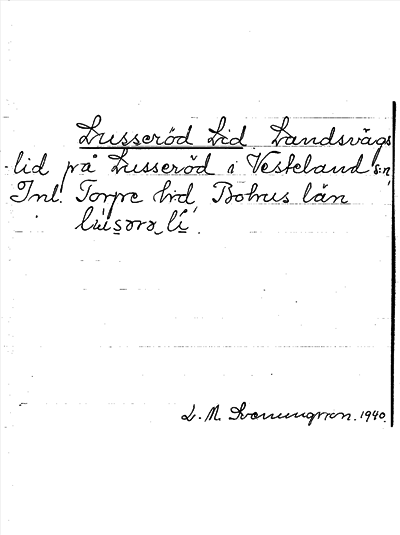 Lusseröd Lid. Landsvägs
lid på Lusseröd i Vesteland s:n,
Inl. Torpe hd, Bohus län
L. M. Svenungsson. 1940.